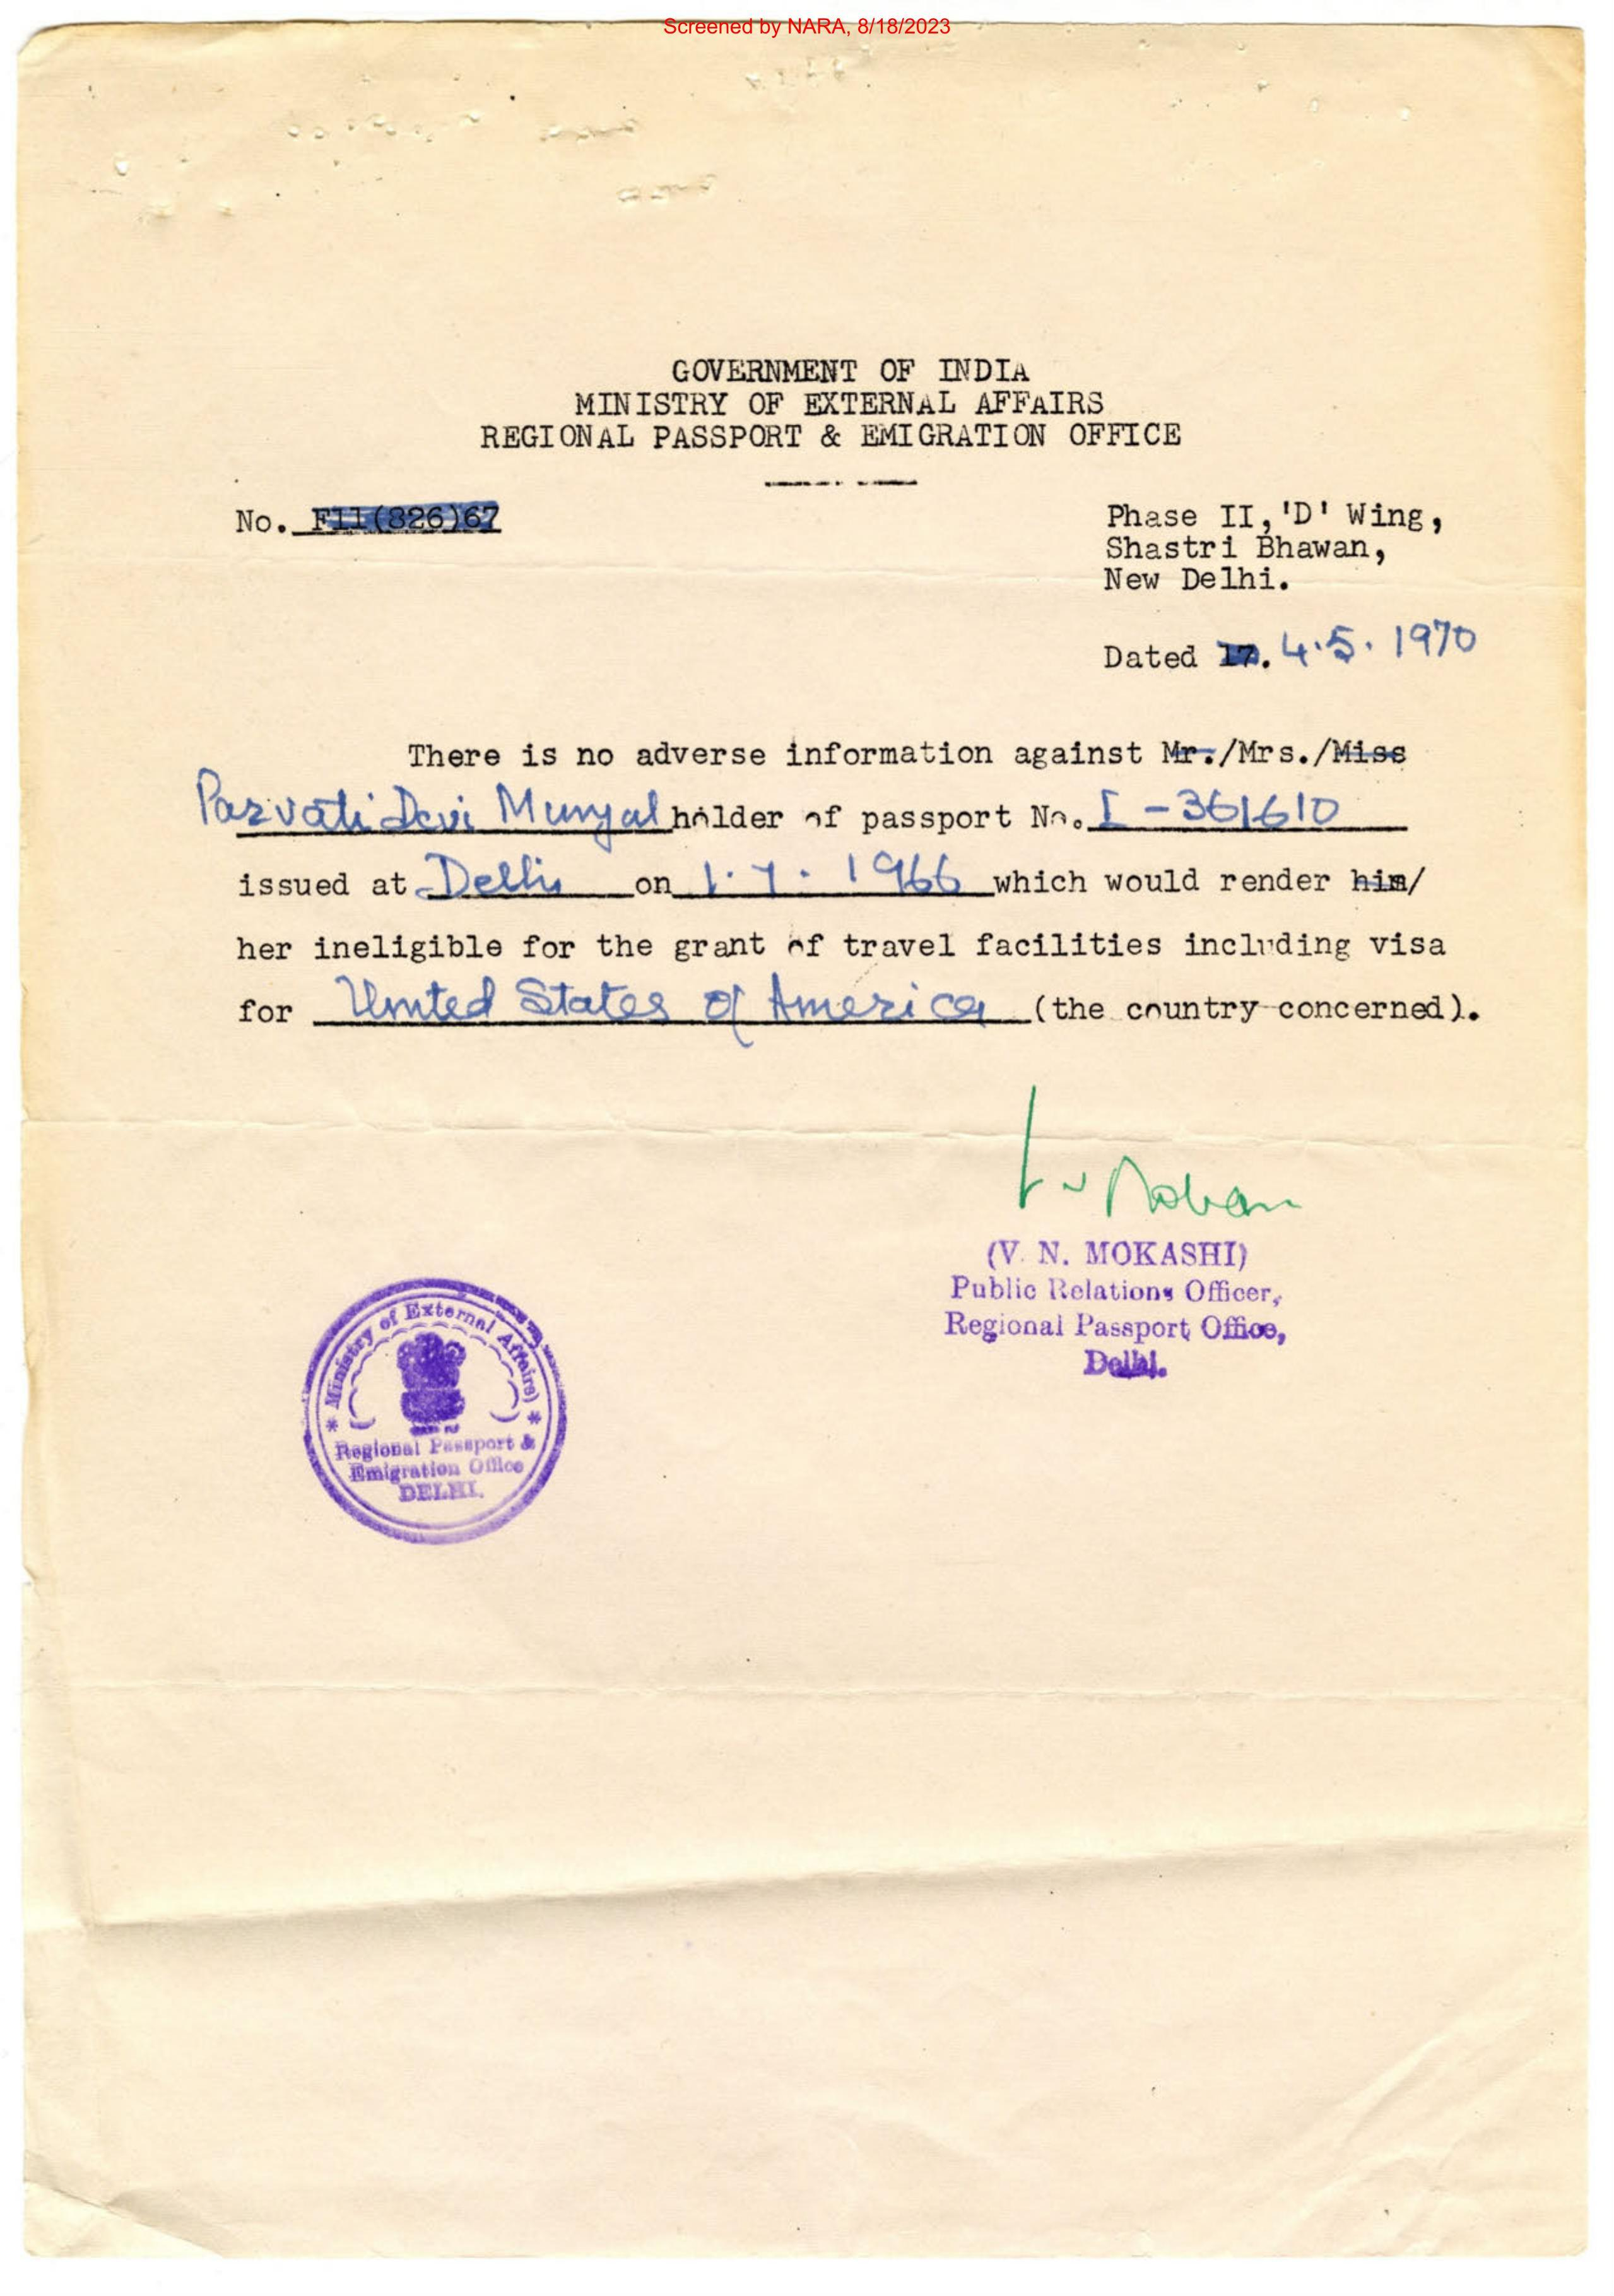 Screened by NARA, 8/18/2023
GOVERNMENT OF INDIA
MINISTRY OF EXTERNAL AFFAIRS
REGIONAL PASSPORT & EMIGRATION OFFICE
No. F11(826)67
Phase II, 'D' Wing,
Shastri Bhawan,
New Delhi.
Dated 17. 4.5.1970
There is no adverse information against Mr./Mrs./Miss
Parvati Devi Munjal holder of passport No. I-361610
issued at Delhi on 1.7.1966 which would render him/
her ineligible for the grant of travel facilities including visa
for United States of America (the country concerned).
(V. N. MOKASHI)
Public Relations Officer,
Regional Passport Office,
Delhi.
* Ministry of External Affairs) *
Regional Passport &
Emigration Office
DELHI.